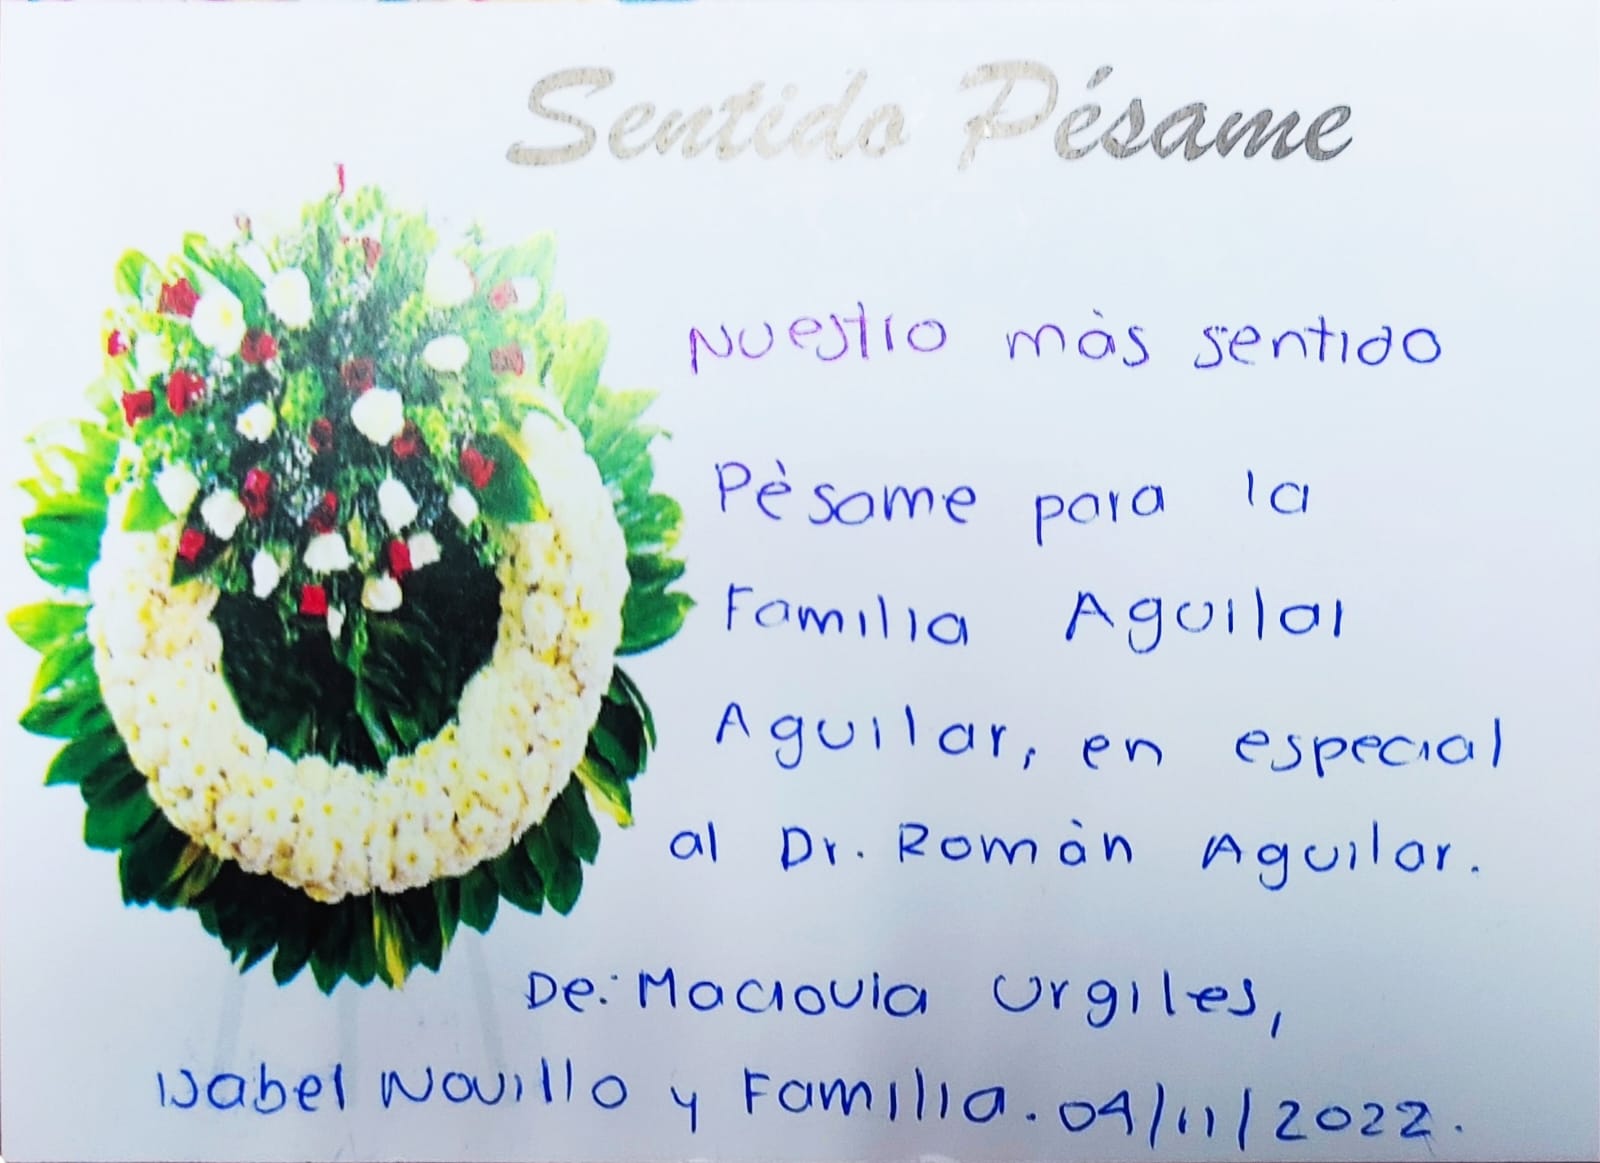 Sentido Pésame
Nuestro màs sentido
Pèsame para la
Familia Aguilar
Aguilar, en especial
al Dr. Romàn Aguilar.
De: Maclovia Urgiles,
Isabel Novillo y Familia. 04/11/2022.